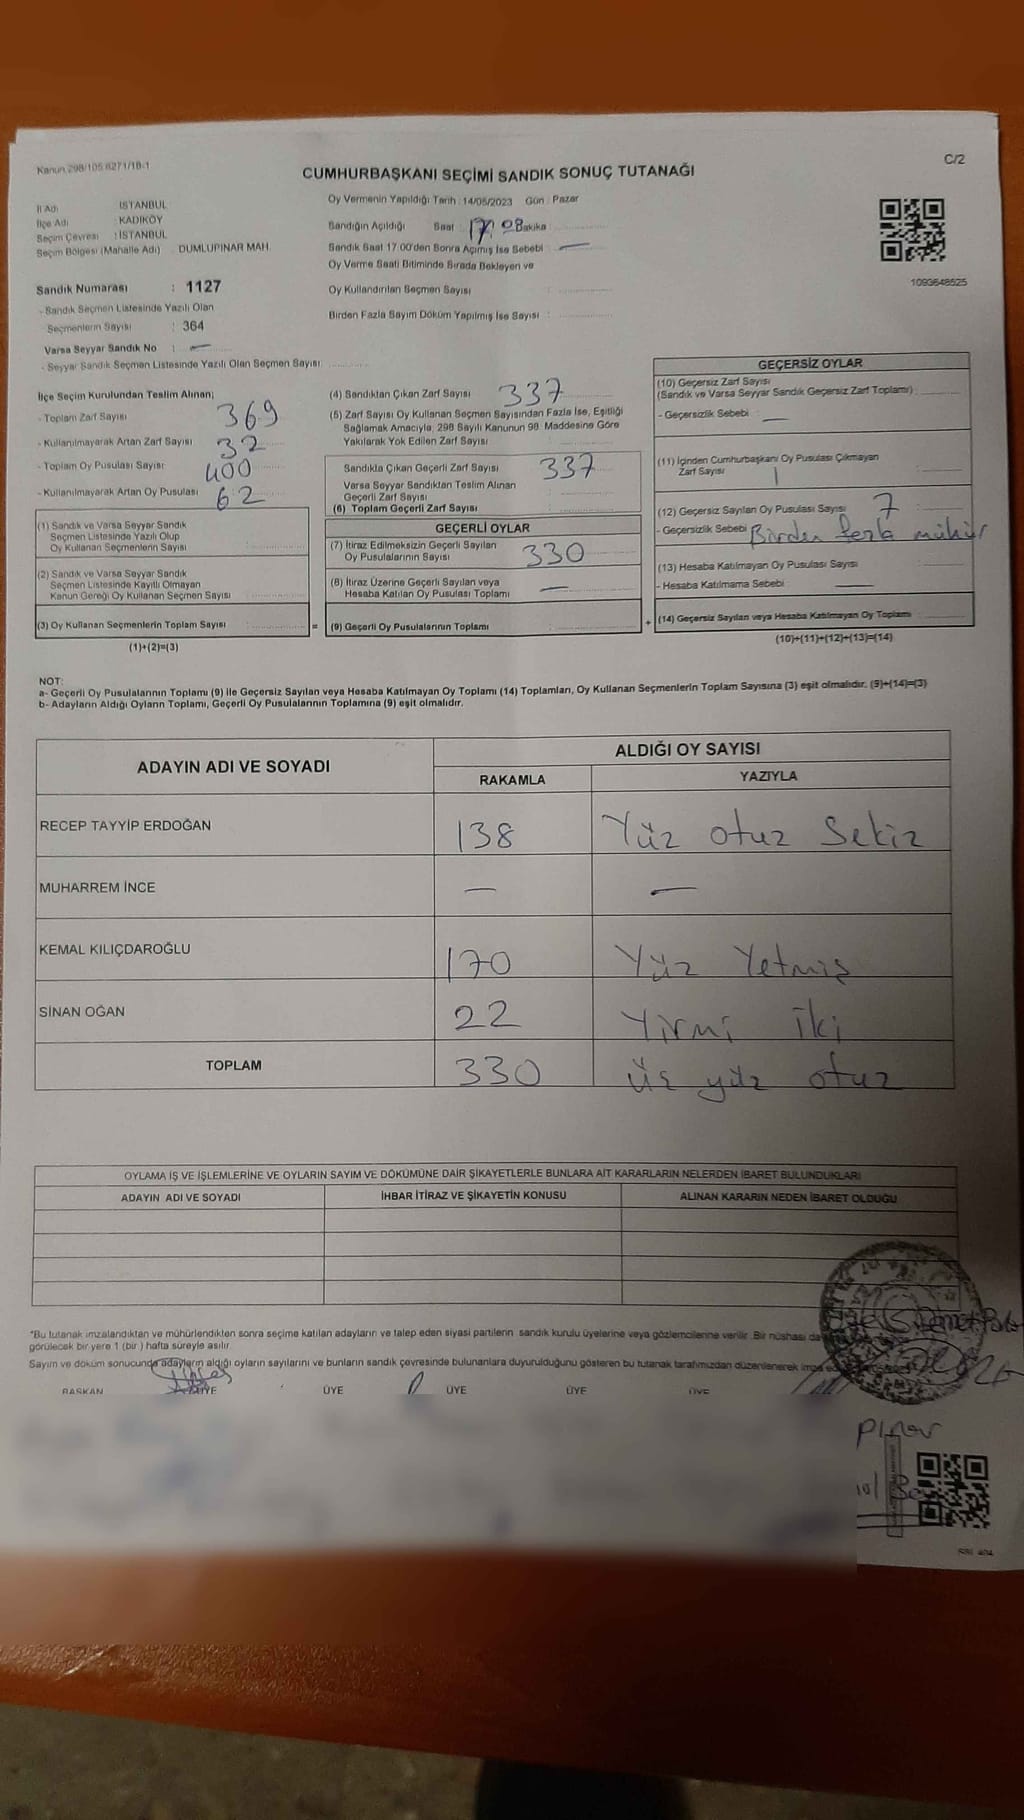 Kanun 298/105 6271/18-1
C/2
CUMHURBAŞKANI SEÇİMİ SANDIK SONUÇ TUTANAĞI
İl Adı : İSTANBUL
İlçe Adı : KADIKÖY
Seçim Çevresi : İSTANBUL
Seçim Bölgesi (Mahalle Adı) : DUMLUPINAR MAH.
Sandık Numarası : 1127
- Sandık Seçmen Listesinde Yazılı Olan
Seçmenlerin Sayısı : 364
Varsa Seyyar Sandık No : —
- Seyyar Sandık Seçmen Listesinde Yazılı Olan Seçmen Sayısı:
Oy Vermenin Yapıldığı Tarih : 14/05/2023 Gün : Pazar
Sandığın Açıldığı Saat 17 08 Dakika
Sandık Saat 17:00'den Sonra Açımış İse Sebebi : —
Oy Verme Saati Bitiminde Sırada Bekleyen ve
Oy Kullandırılan Seçmen Sayısı :
Birden Fazla Sayım Döküm Yapılmış İse Sayısı :
1093648525
İlçe Seçim Kurulundan Teslim Alınan;
- Toplam Zarf Sayısı 369
- Kullanılmayarak Artan Zarf Sayısı : 32
- Toplam Oy Pusulası Sayısı 400
- Kullanılmayarak Artan Oy Pusulası : 62
(1) Sandık ve Varsa Seyyar Sandık
Seçmen Listesinde Yazılı Olup
Oy Kullanan Seçmenlerin Sayısı :
(2) Sandık ve Varsa Seyyar Sandık
Seçmen Listesinde Kayıtlı Olmayan
Kanun Gereği Oy Kullanan Seçmen Sayısı :
(3) Oy Kullanan Seçmenlerin Toplam Sayısı :
(1)+(2)=(3)
(4) Sandıktan Çıkan Zarf Sayısı : 337
(5) Zarf Sayısı Oy Kullanan Seçmen Sayısından Fazla İse, Eşitliği
Sağlamak Amacıyla; 298 Sayılı Kanunun 98. Maddesine Göre
Yakılarak Yok Edilen Zarf Sayısı :
Sandıkla Çıkan Geçerli Zarf Sayısı : 337
Varsa Seyyar Sandıktan Teslim Alınan
Geçerli Zarf Sayısı :
(6) Toplam Geçerli Zarf Sayısı :
GEÇERLİ OYLAR
(7) İtiraz Edilmeksizin Geçerli Sayılan
Oy Pusulalarının Sayısı : 330
(8) İtiraz Üzerine Geçerli Sayılan veya
Hesaba Katılan Oy Pusulası Toplamı : —
= (9) Geçerli Oy Pusulalarının Toplamı : +
GEÇERSİZ OYLAR
(10) Geçersiz Zarf Sayısı
(Sandık ve Varsa Seyyar Sandık Geçersiz Zarf Toplamı) :
- Geçersizlik Sebebi : —
(11) İçinden Cumhurbaşkanı Oy Pusulası Çıkmayan
Zarf Sayısı
(12) Geçersiz Sayılan Oy Pusulası Sayısı : 7
- Geçersizlik Sebebi : Birden fazla mühür
(13) Hesaba Katılmayan Oy Pusulası Sayısı :
- Hesaba Katılmama Sebebi : —
(14) Geçersiz Sayılan veya Hesaba Katılmayan Oy Toplamı :
(10)+(11)+(12)+(13)=(14)
NOT:
a- Geçerli Oy Pusulalarının Toplamı (9) ile Geçersiz Sayılan veya Hesaba Katılmayan Oy Toplamı (14) Toplamları, Oy Kullanan Seçmenlerin Toplam Sayısına (3) eşit olmalıdır. (9)+(14)=(3)
b- Adayların Aldığı Oyların Toplamı, Geçerli Oy Pusulalarının Toplamına (9) eşit olmalıdır.
ADAYIN ADI VE SOYADI
ALDIĞI OY SAYISI
RAKAMLA YAZIYLA
RECEP TAYYİP ERDOĞAN 138 Yüz otuz Sekiz
MUHARREM İNCE — —
KEMAL KILIÇDAROĞLU 170 Yüz Yetmiş
SİNAN OĞAN 22 Yirmi İki
TOPLAM 330 üç yüz otuz
OYLAMA İŞ VE İŞLEMLERİNE VE OYLARIN SAYIM VE DÖKÜMÜNE DAİR ŞİKAYETLERLE BUNLARA AİT KARARLARIN NELERDEN İBARET BULUNDUKLARI
ADAYIN ADI VE SOYADI İHBAR İTİRAZ VE ŞİKAYETİN KONUSU ALINAN KARARIN NEDEN İBARET OLDUĞU
*Bu tutanak imzalandıktan ve mühürlendikten sonra seçime katılan adayların ve talep eden siyasi partilerin sandık kurulu üyelerine veya gözlemcilerine verilir. Bir nüshası da
görülecek bir yere 1 (bir) hafta süreyle asılır.
Sayım ve döküm sonucunda adayların aldığı oyların sayılarını ve bunların sandık çevresinde bulunanlara duyurulduğunu gösteren bu tutanak tarafımızdan düzenlenerek
BAŞKAN ÜYE ÜYE ÜYE ÜYE ÜYE
pınar